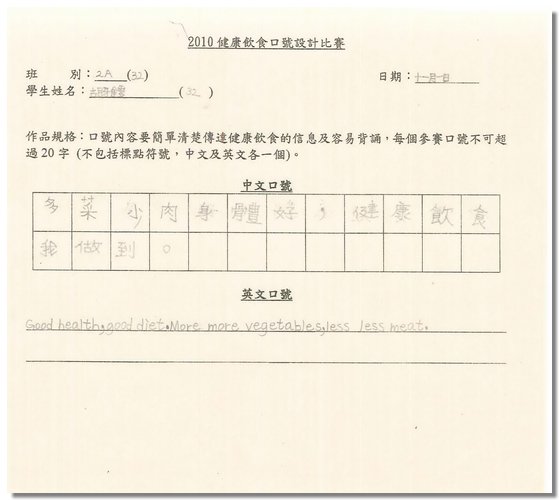 2010 健康飲食口號設計比賽
班 別：2A (32) 日期：十一月一日
學生姓名： (32)
作品規格：口號內容要簡單清楚傳達健康飲食的信息及容易背誦，每個參賽口號不可超
過 20 字 (不包括標點符號，中文及英文各一個)。
中文口號
多菜少肉身體好，健康飲食
我做到。
英文口號
Good health,good diet.More more vegetables,less less meat.